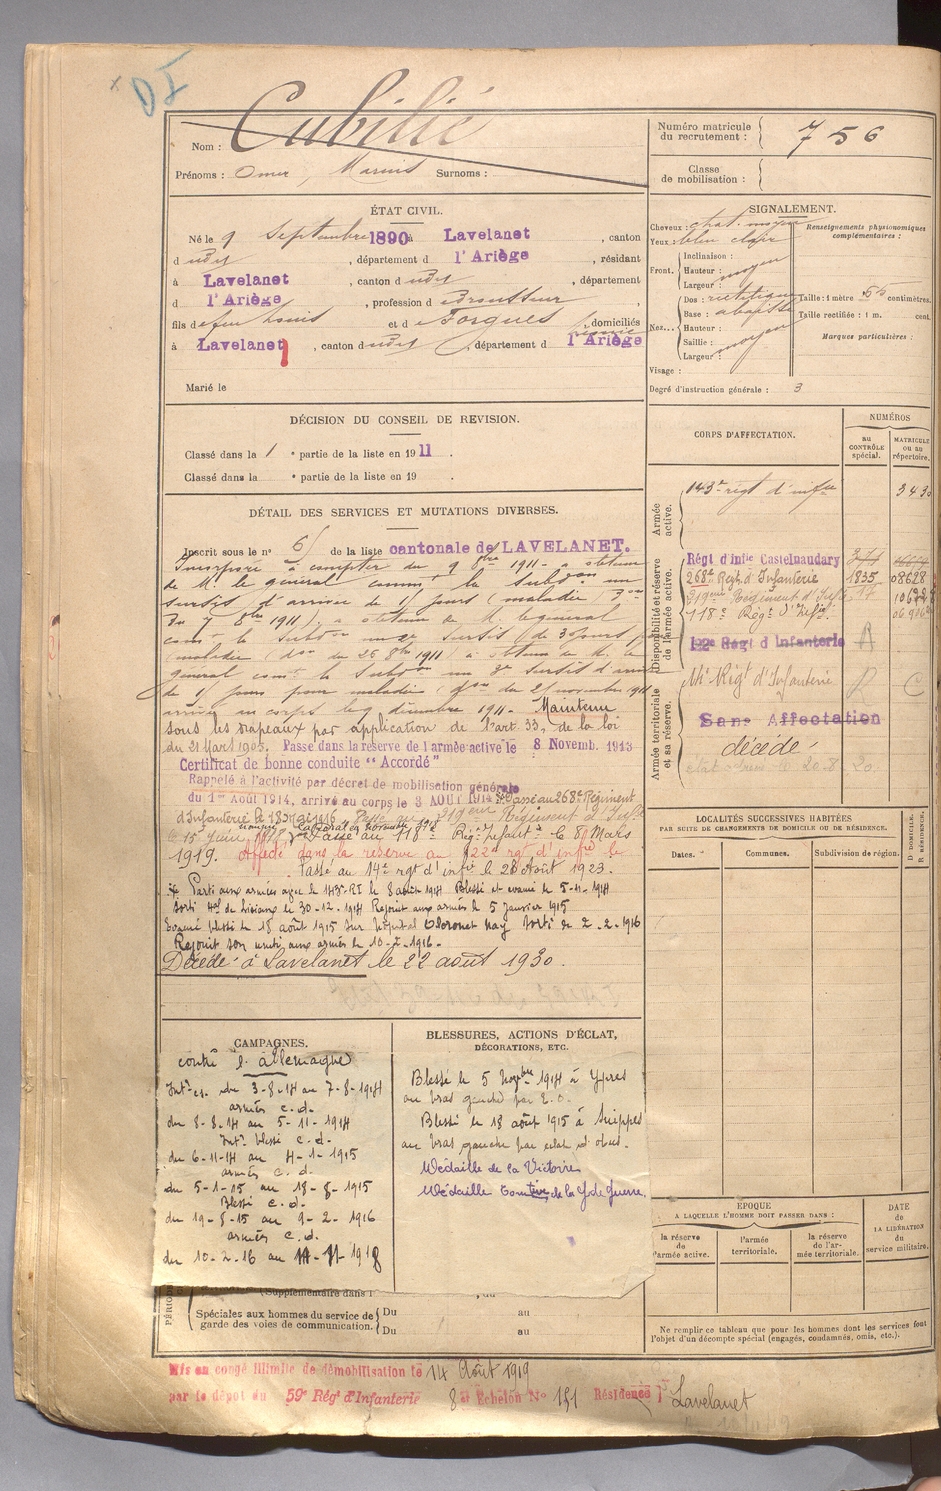 DI
Nom : Cubilié
Prénoms : Omer, Marius Surnoms :
Numéro matricule du recrutement : 756
Classe de mobilisation :
ÉTAT CIVIL.
Né le 9 Septembre 1890 à Lavelanet, canton
d udit, département d l'Ariège, résidant
à Lavelanet, canton d udit, département
d l'Ariège, profession d
fils de feu Louis et de Forgues, domiciliés
à Lavelanet, canton d udit, département d l'Ariège
Marié le
DÉCISION DU CONSEIL DE REVISION.
Classé dans la 1 e partie de la liste en 1911.
Classé dans la e partie de la liste en 19 .
DÉTAIL DES SERVICES ET MUTATIONS DIVERSES.
Inscrit sous le n° 6 de la liste cantonale de LAVELANET.
Incorporé à compter du 9 8bre 1911 - a obtenu
de M. le général commt la Subdon un
sursis d'arrivée de 15 jours (maladie) Don
du 7 8bre 1911). a obtenu de M. le général
comt la Subdon un 2e Sursis (de 30 jours
(maladie (don du 26 8bre 1911) a obtenu de M. le
général comt la Subdon un 3e Sursis d'
de 15 jours pour maladie (don du 21 novembre 1911
arrivé au corps le 9 décembre 1911. Maintenu
sous les drapeaux par application de l'art 33, de la loi
du 21 Mars 1905. Passé dans la réserve de l'armée active le 8 Novemb. 1913
Certificat de bonne conduite "Accordé"
Rappelé à l'activité par décret de mobilisation générale
du 1er Août 1914, arrivé au corps le 3 AOUT 1914 Passé au 268e Régiment
d'Infanterie le 1916 - Passé au 219ème Régiment d'Infie
le 15 Juin 1918 Passé au 118e Régt Infant. le 8 Mars
1919. Affecté dans la réserve au 122e rgt d'infie le
Passé au 14e rgt d'infie le 28 Août 1923.
Parti aux armées avec le 143e RI le 8 août 1914 Blessé et évacué le 5-11-1914
Sorti Hal de Lisieux le 30-12-1914 Rejoint aux armées le 5 Janvier 1915
Evacué blessé le 18 août 1915 sur hôpital Sorti le 2-2-1916
Rejoint son unité aux armées le 10-2-1916-
Décédé à Lavelanet le 22 août 1930.
CAMPAGNES.
contre l'allemagne
Intér. c.s. du 3-8-14 au 7-8-1914
armées c.d.
du 8-8-14 au 5-11-1914
Intr. blessé c.d.
du 6-11-14 au 4-1-1915
armées c.d.
du 5-1-15 au 18-8-1915
Blessé c.d.
du 19-8-15 au 9-2-1916
armées c.d.
du 10-2-16 au 11-11-1918
BLESSURES, ACTIONS D'ÉCLAT,
DÉCORATIONS, ETC.
Blessé le 5 Novbre 1914 à Ypres
au bras gauche par E.O.
Blessé le 18 août 1915 à Suippes
au bras gauche par éclat d'obus.
Médaille de la Victoire
Médaille Comtive de la Gde Guerre.
Supplémentaire dans l
Spéciales aux hommes du service de garde des voies de communication.
Du au
Du au
Mis en congé illimité de démobilisation le 14 Août 1919
par le dépôt du 59e Régt d'Infanterie 8e Echelon N° 151 Résidence Lavelanet
SIGNALEMENT.
Cheveux chat. moyen
Yeux bleu clair
Front. Inclinaison :
Hauteur : moyen
Largeur :
Nez. Dos : rectiligne
Base : abaissée
Hauteur :
Saillie : moyen
Largeur :
Visage :
Renseignements physionomiques complémentaires :
Taille : 1 mètre 55 centimètres.
Taille rectifiée : 1 m. cent.
Marques particulières :
Degré d'instruction générale : 3
CORPS D'AFFECTATION.
NUMÉROS
au CONTRÔLE spécial.
MATRICULE ou au répertoire.
Armée active.
143e régt d'infie 343
Disponibilité et réserve de l'armée active.
Régt d'infie Castelnaudary
268e Regt d'Infanterie 1835 08628
219ème Régiment d'Infie
118e Régt d'Infie.
122e Régt d'Infanterie A
Armée territoriale et sa réserve.
14e Régt d'Infanterie C
Sans Affectation
décédé
LOCALITÉS SUCCESSIVES HABITÉES
PAR SUITE DE CHANGEMENTS DE DOMICILE OU DE RÉSIDENCE.
Dates.
Communes.
Subdivision de région.
D DOMICILE. R RÉSIDENCE.
ÉPOQUE
A LAQUELLE L'HOMME DOIT PASSER DANS :
DATE de LA LIBÉRATION du service militaire.
la réserve de l'armée active.
l'armée territoriale.
la réserve de l'armée territoriale.
Ne remplir ce tableau que pour les hommes dont les services font
l'objet d'un décompte spécial (engagés, condamnés, omis, etc.).